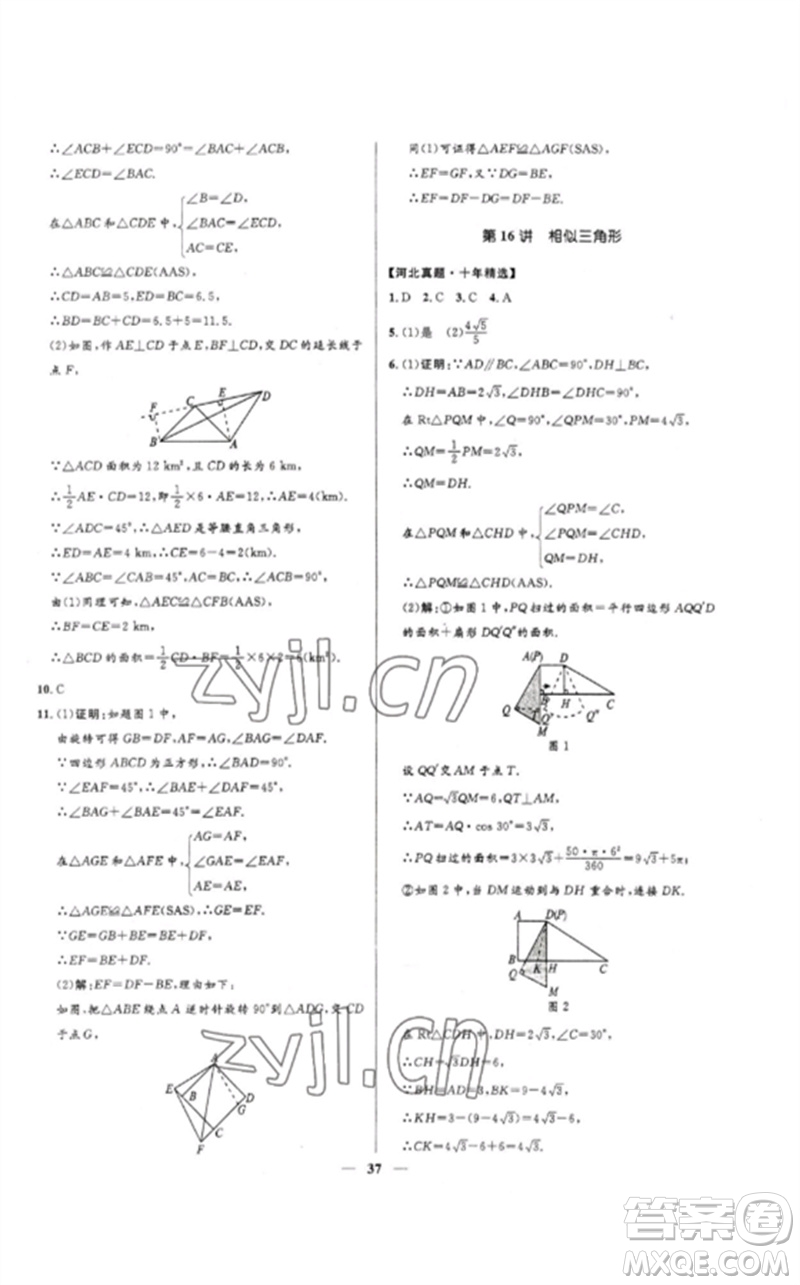 ∴∠ACB+∠ECD=90°=∠BAC+∠ACB,
∴∠ECD=∠BAC.
在△ABC 和△CDE 中, { ∠B=∠D,
∠BAC=∠ECD,
AC=CE,
∴△ABC≌△CDE(AAS),
∴CD=AB=5,DE=BC=6.5,
∴BD=BC+CD=6.5+5=11.5.
(2)如图,作 AE⊥CD 于点 E,BF⊥CD,交 DC 的延长线于
点 F,
F
C
E
D
B
A
∵△ACD 面积为 12 km²,且 CD 的长为 6 km,
∴1/2 AE·CD=12,即1/2×6·AE=12,∴AE=4(km).
∵∠ADC=45°,∴△AED 是等腰直角三角形,
∴ED=AE=4 km,∴CE=6-4=2(km).
∵∠ABC=∠CAB=45°,∴∠ACB=90°,
由(1)同理可知,△AEC≌△CFB(AAS),
∴BF=CE=2 km,
∴△BCD 的面积=1/2 CD·BF=1/2×6×2=6(km²).
10. C
11. (1)证明:如题图 1 中,
由旋转可得 GB=DF,AF=AG,∠BAG=∠DAF,
∵四边形 ABCD 为正方形,∴∠BAD=90°,
∵∠EAF=45°,∴∠BAE+∠DAF=45°,
∴∠BAG+∠BAE=45°=∠EAF.
在△AGE 和△AFE 中, { AG=AF,
∠GAE=∠FAE,
AE=AE,
∴△AGE≌△AFE(SAS),∴GE=EF.
∵GE=GB+BE=BE+DF,
∴EF=BE+DF.
(2)解:EF=DF-BE,理由如下:
如图,把△ABE 绕点 A 逆时针旋转 90°到△ADG,交 CD
于点 G,
A
E
B
D
G
C
F
同(1)可证得△AEF≌△AGF(SAS),
∴EF=GF,又∵DG=BE,
∴EF=DF-DG=DF-BE.
第 16 讲 相似三角形
【河北真题·十年精选】
1. D 2. C 3. C 4. A
5. (1)是 (2)4√5/5
6. (1)证明:∵AD∥BC,∠ABC=90°,DH⊥BC,
∴DH=AB=2√3,∠DHB=∠DHC=90°,
在 Rt△PQM 中,∠Q=90°,∠QPM=30°,PM=4√3,
∴QM=1/2 PM=2√3,
∴QM=DH.
在△PQM 和△CHD 中, { ∠QPM=∠C,
∠PQM=∠CHD,
QM=DH,
∴△PQM≌△CHD(AAS).
(2)解:①如图 1 中,PQ 扫过的面积=平行四边形 AQQ′D
的面积+扇形 DQ′Q″的面积.
A(P)
D
B
H
C
Q
T
Q′
Q″
M
图 1
设 QQ′交 AM 于点 T.
∵AQ=√3QM=6,QT⊥AM,
∴AT=AQ·cos 30°=3√3,
∴PQ 扫过的面积=3×3√3+50·π·6²/360=9√3+5π;
②如图 2 中,当 DM 运动到与 DH 重合时,连接 DK.
A
D(P)
B
K
H
C
Q
M
图 2
在 Rt△CDH 中,DH=2√3,∠C=30°,
∴CH=√3DH=6,
∵BH=AD=3,BK=9-4√3,
∴KH=3-(9-4√3)=4√3-6,
∴CK=4√3-6+6=4√3.
37
zyjl.cn
zyjl.cn
答案卷
MXQE.COM